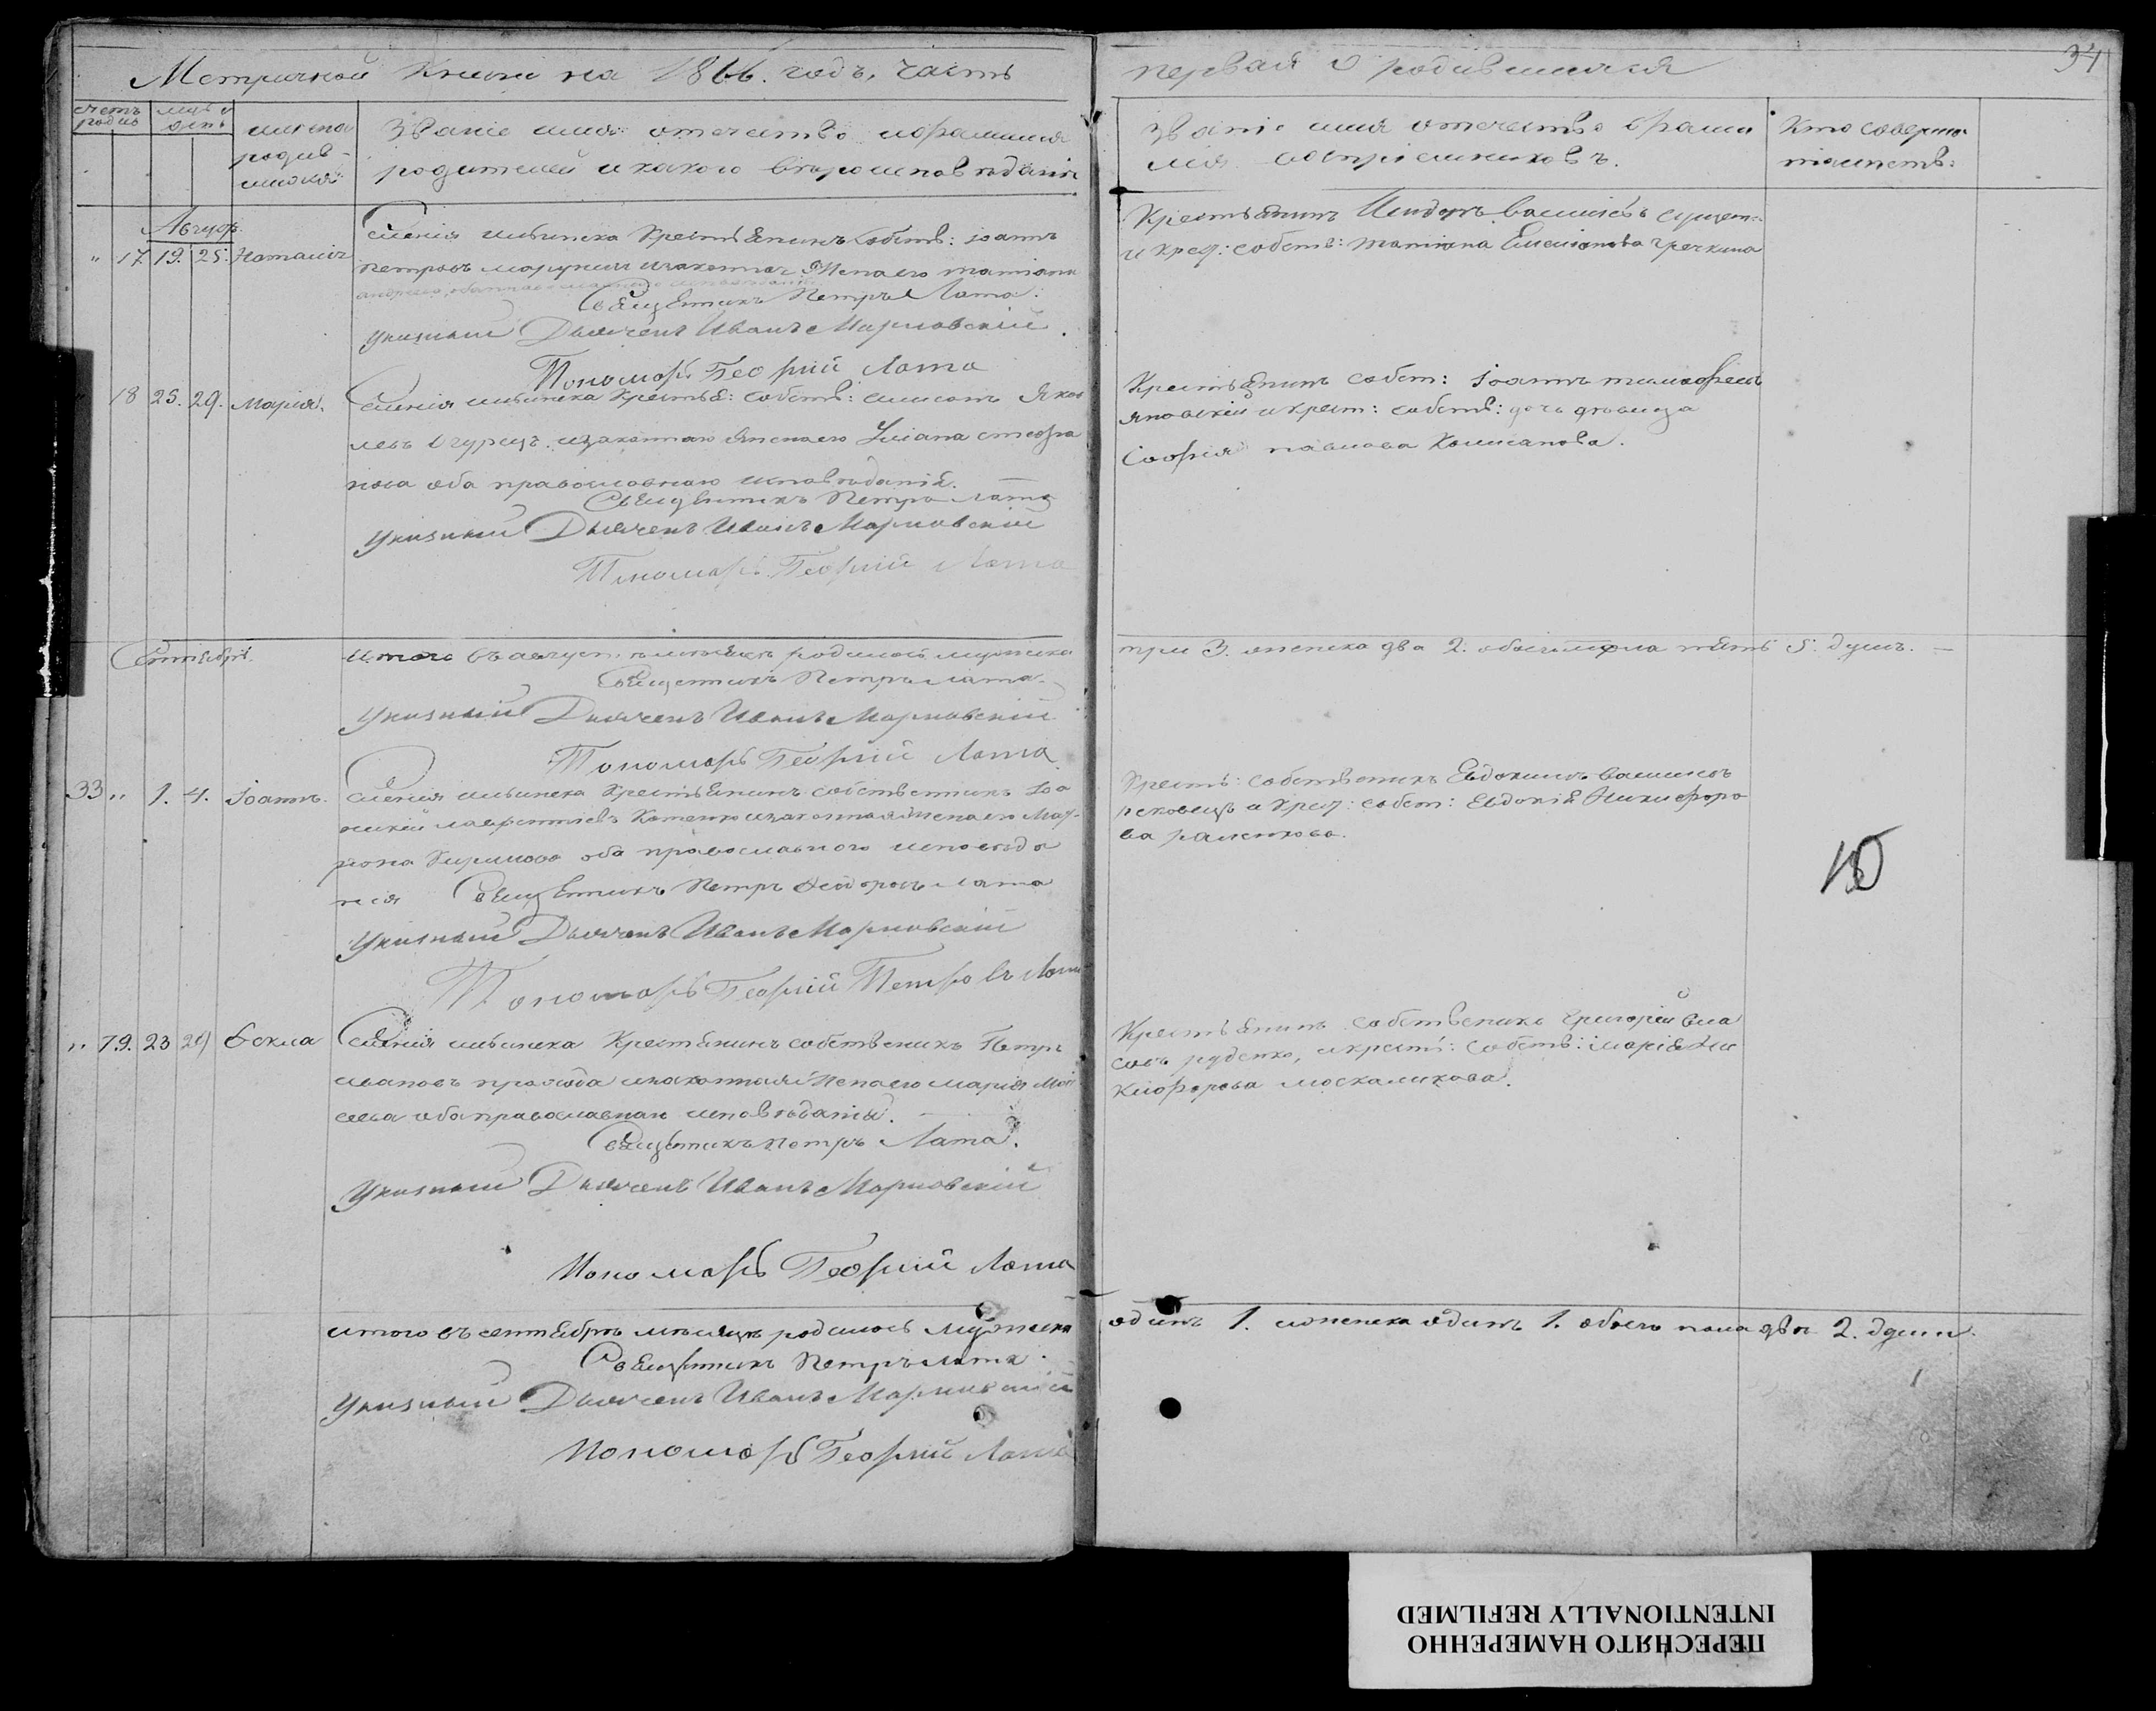 Метричной Книги на 1866. годъ, часть
первая о родившихся
34
счетъ родив
мцъ и день
имена родив-
шихся
Званіе имя отечество и фамилия
родителей и какого вѣроисповѣданія
Званіе имя отечество и фами
лія воспріемниковъ.
Кто соверша
таинств:
Август
" 17. 19. 25. Наталія
Селенія Крестьянинъ собств: Іоаннъ
Петровъ законная жена его татіана
Священникъ Петръ Лата.
Указный Дьячекъ Иванъ Марковскій.
Пономарь Георгий Лата
Крестьянинъ Исидоръ Василіевъ
и крес: собств: татіана Емеліанова
18 25. 29. Марія.
Селенія Крестья: собств: Яков
левъ Огурецъ. и законная жена его стефа
нова оба православнаго исповѣданія.
Священникъ Петръ Лата
Указный Дьячекъ Иванъ Марковскій
Пономарь Георгий Лата
Крестьянинъ собст: Іоаннъ тимофеевъ
яновскій и крест: собств: дочь дѣвица
Софія павлова
Сентябрь.
Итого въ август. мѣсяцѣ родилось мужеска
три 3. женска два 2. обоего пола пять 5. душъ. —
Священникъ Петръ Лата.
Указный Дьячекъ Иванъ Марковскій
Пономарь Георгий Лата
33 " 1. 4. Іоаннъ.
Селенія Крестьянинъ собственникъ Іоа
никій лаврентіевъ Котенко и законная жена его Мат-
рона Кирилова оба православнаго исповѣда
нія Священникъ Петръ Феодоровъ Лата
Указный Дьячекъ Иванъ Марковскій
Пономарь Георгий Петровъ Лата
Крестья: собственникъ Евдокимъ Василиевъ
и крес: собст: Евдокія Никифоро
ва
" 79. 23 29 Фекла
Селенія Крестьянинъ собственникъ Петръ
ивановъ и законная жена его марія Мои
сеева оба православнаго исповѣданія.
Священникъ Петръ Лата.
Указный Дьячекъ Иванъ Марковскій
Пономарь Георгий Лата
Крестьянинъ собственикъ григорій вла
совъ руденко, и крест: собств: марія Ни
кифорова москаликова.
итого въ сентябрѣ мѣсяцѣ родилось мужеска
одинъ 1. женска одинъ 1. обоего пола два 2. души.
Священникъ Петръ Лата.
Указный Дьячекъ Иванъ Марковскій
Пономарь Георгий Лата
ПЕРЕСНЯТО НАМЕРЕННО
INTENTIONALLY REFILMED